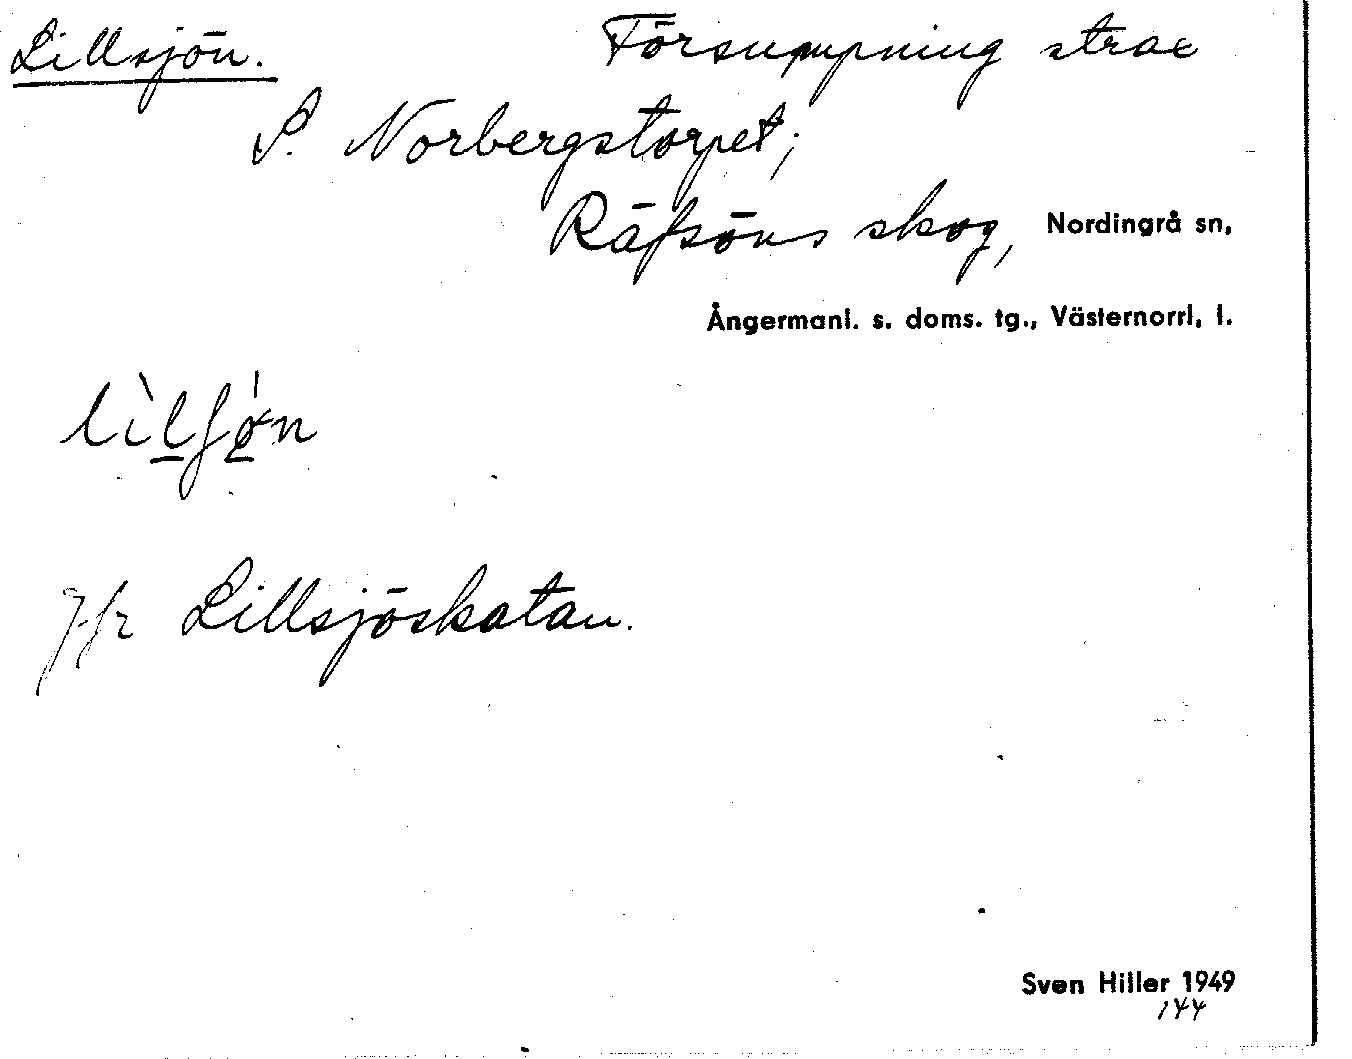 Lillsjön. Försumpning strax
S. Norbergstorpet;
Räfsöns skog, Nordingrå sn,
Ångermanl. s. doms. tg., Västernorrl, l.
Jfr Lillsjöskatan.
Sven Hiller 1949
144